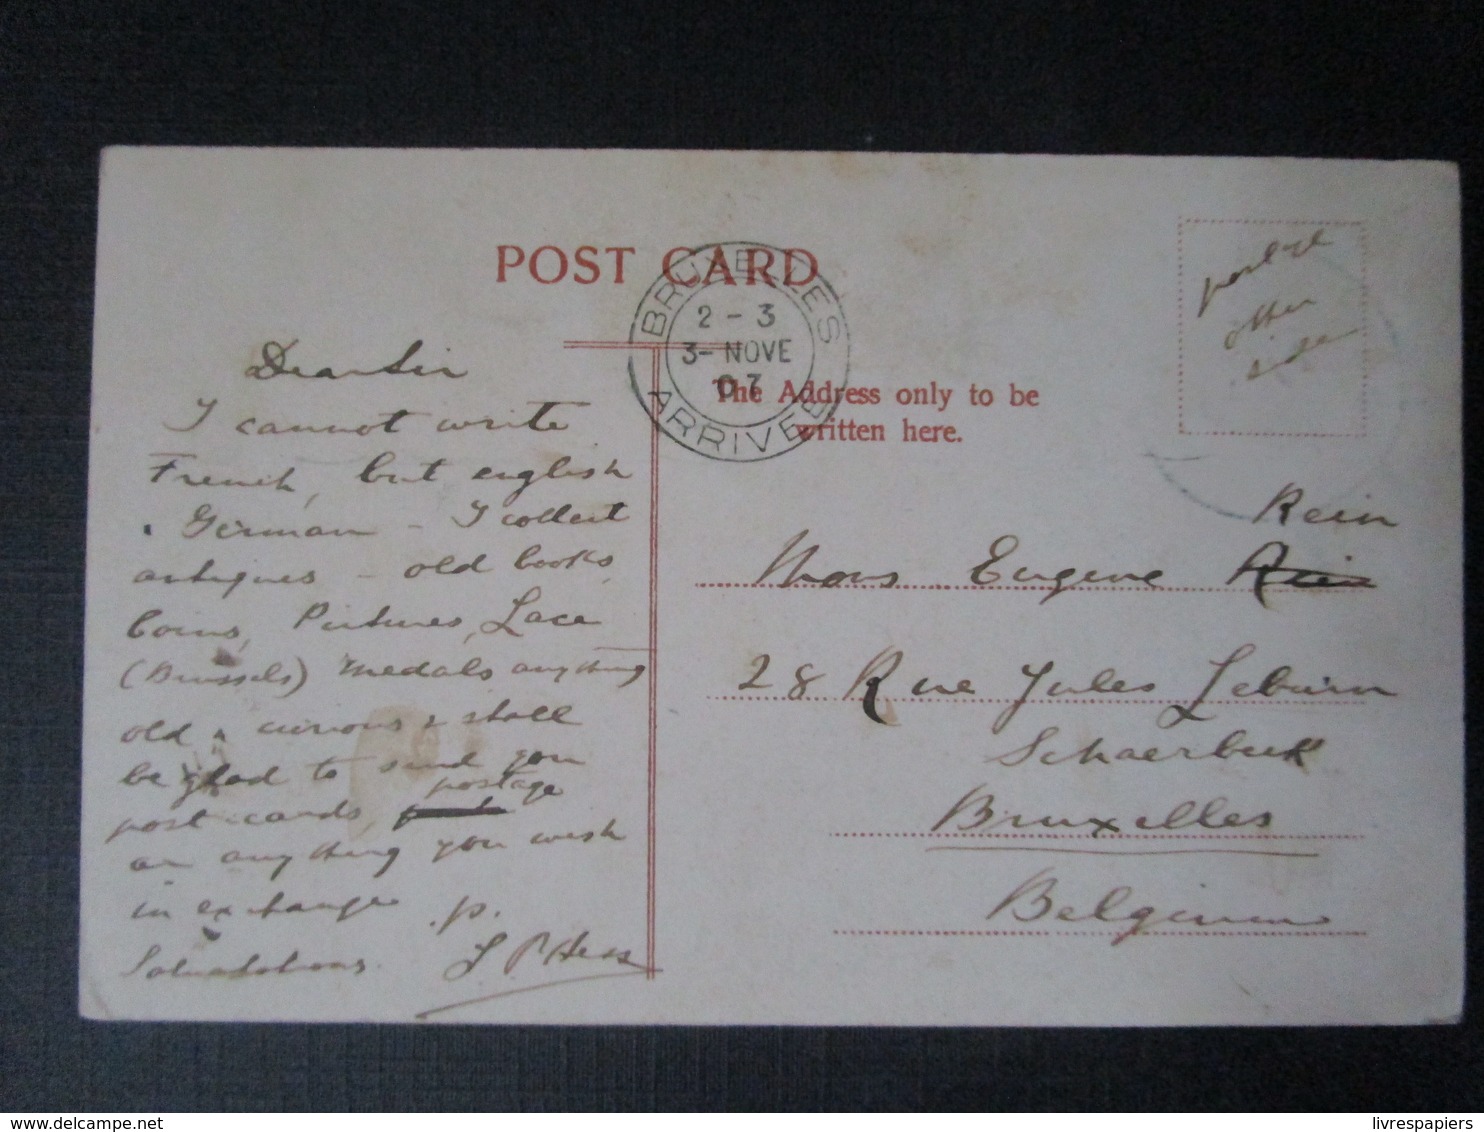 POST CARD
BRUXELLES
2-3
3-NOVE
07
ARRIVEE
The Address only to be
written here.
postage
other
side
Dear Sir
I cannot write
French, but english
& German - I collect
antiques - old books,
Coins, Pictures, Lace
(Brussels) medals anything
old & curious & shall
be glad to send you
post cards, postage
or anything you wish
in exchange .p.
Salutations.
Rein
Mons Eugene
28 Rue Jules Lebrun
Schaerbeek
Bruxelles
Belgium
livrespapiers